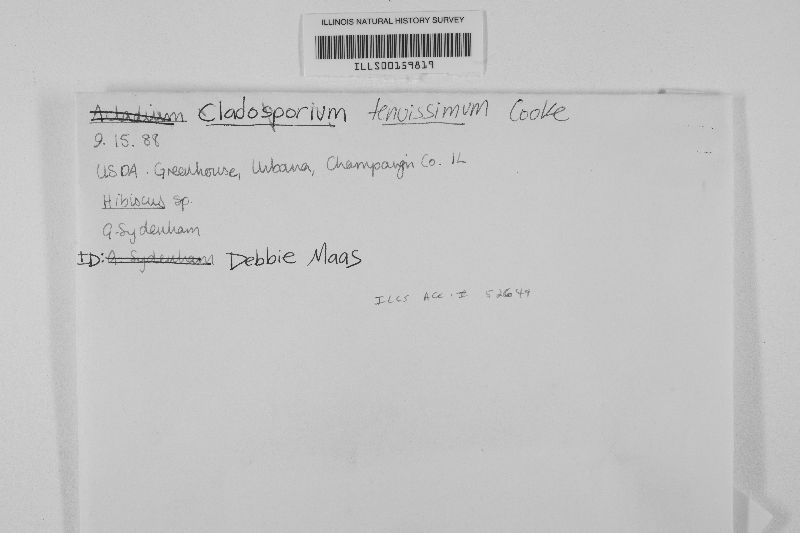 ILLINOIS NATURAL HISTORY SURVEY
ILLS00159819
Cladosporium tenuissimum Cooke
9.15.88
USDA. Greenhouse, Urbana, Champaign Co. IL
Hibiscus sp.
G. Sydenham
ID: G. Sydenham Debbie Maas
ILLS Acc. # 52649